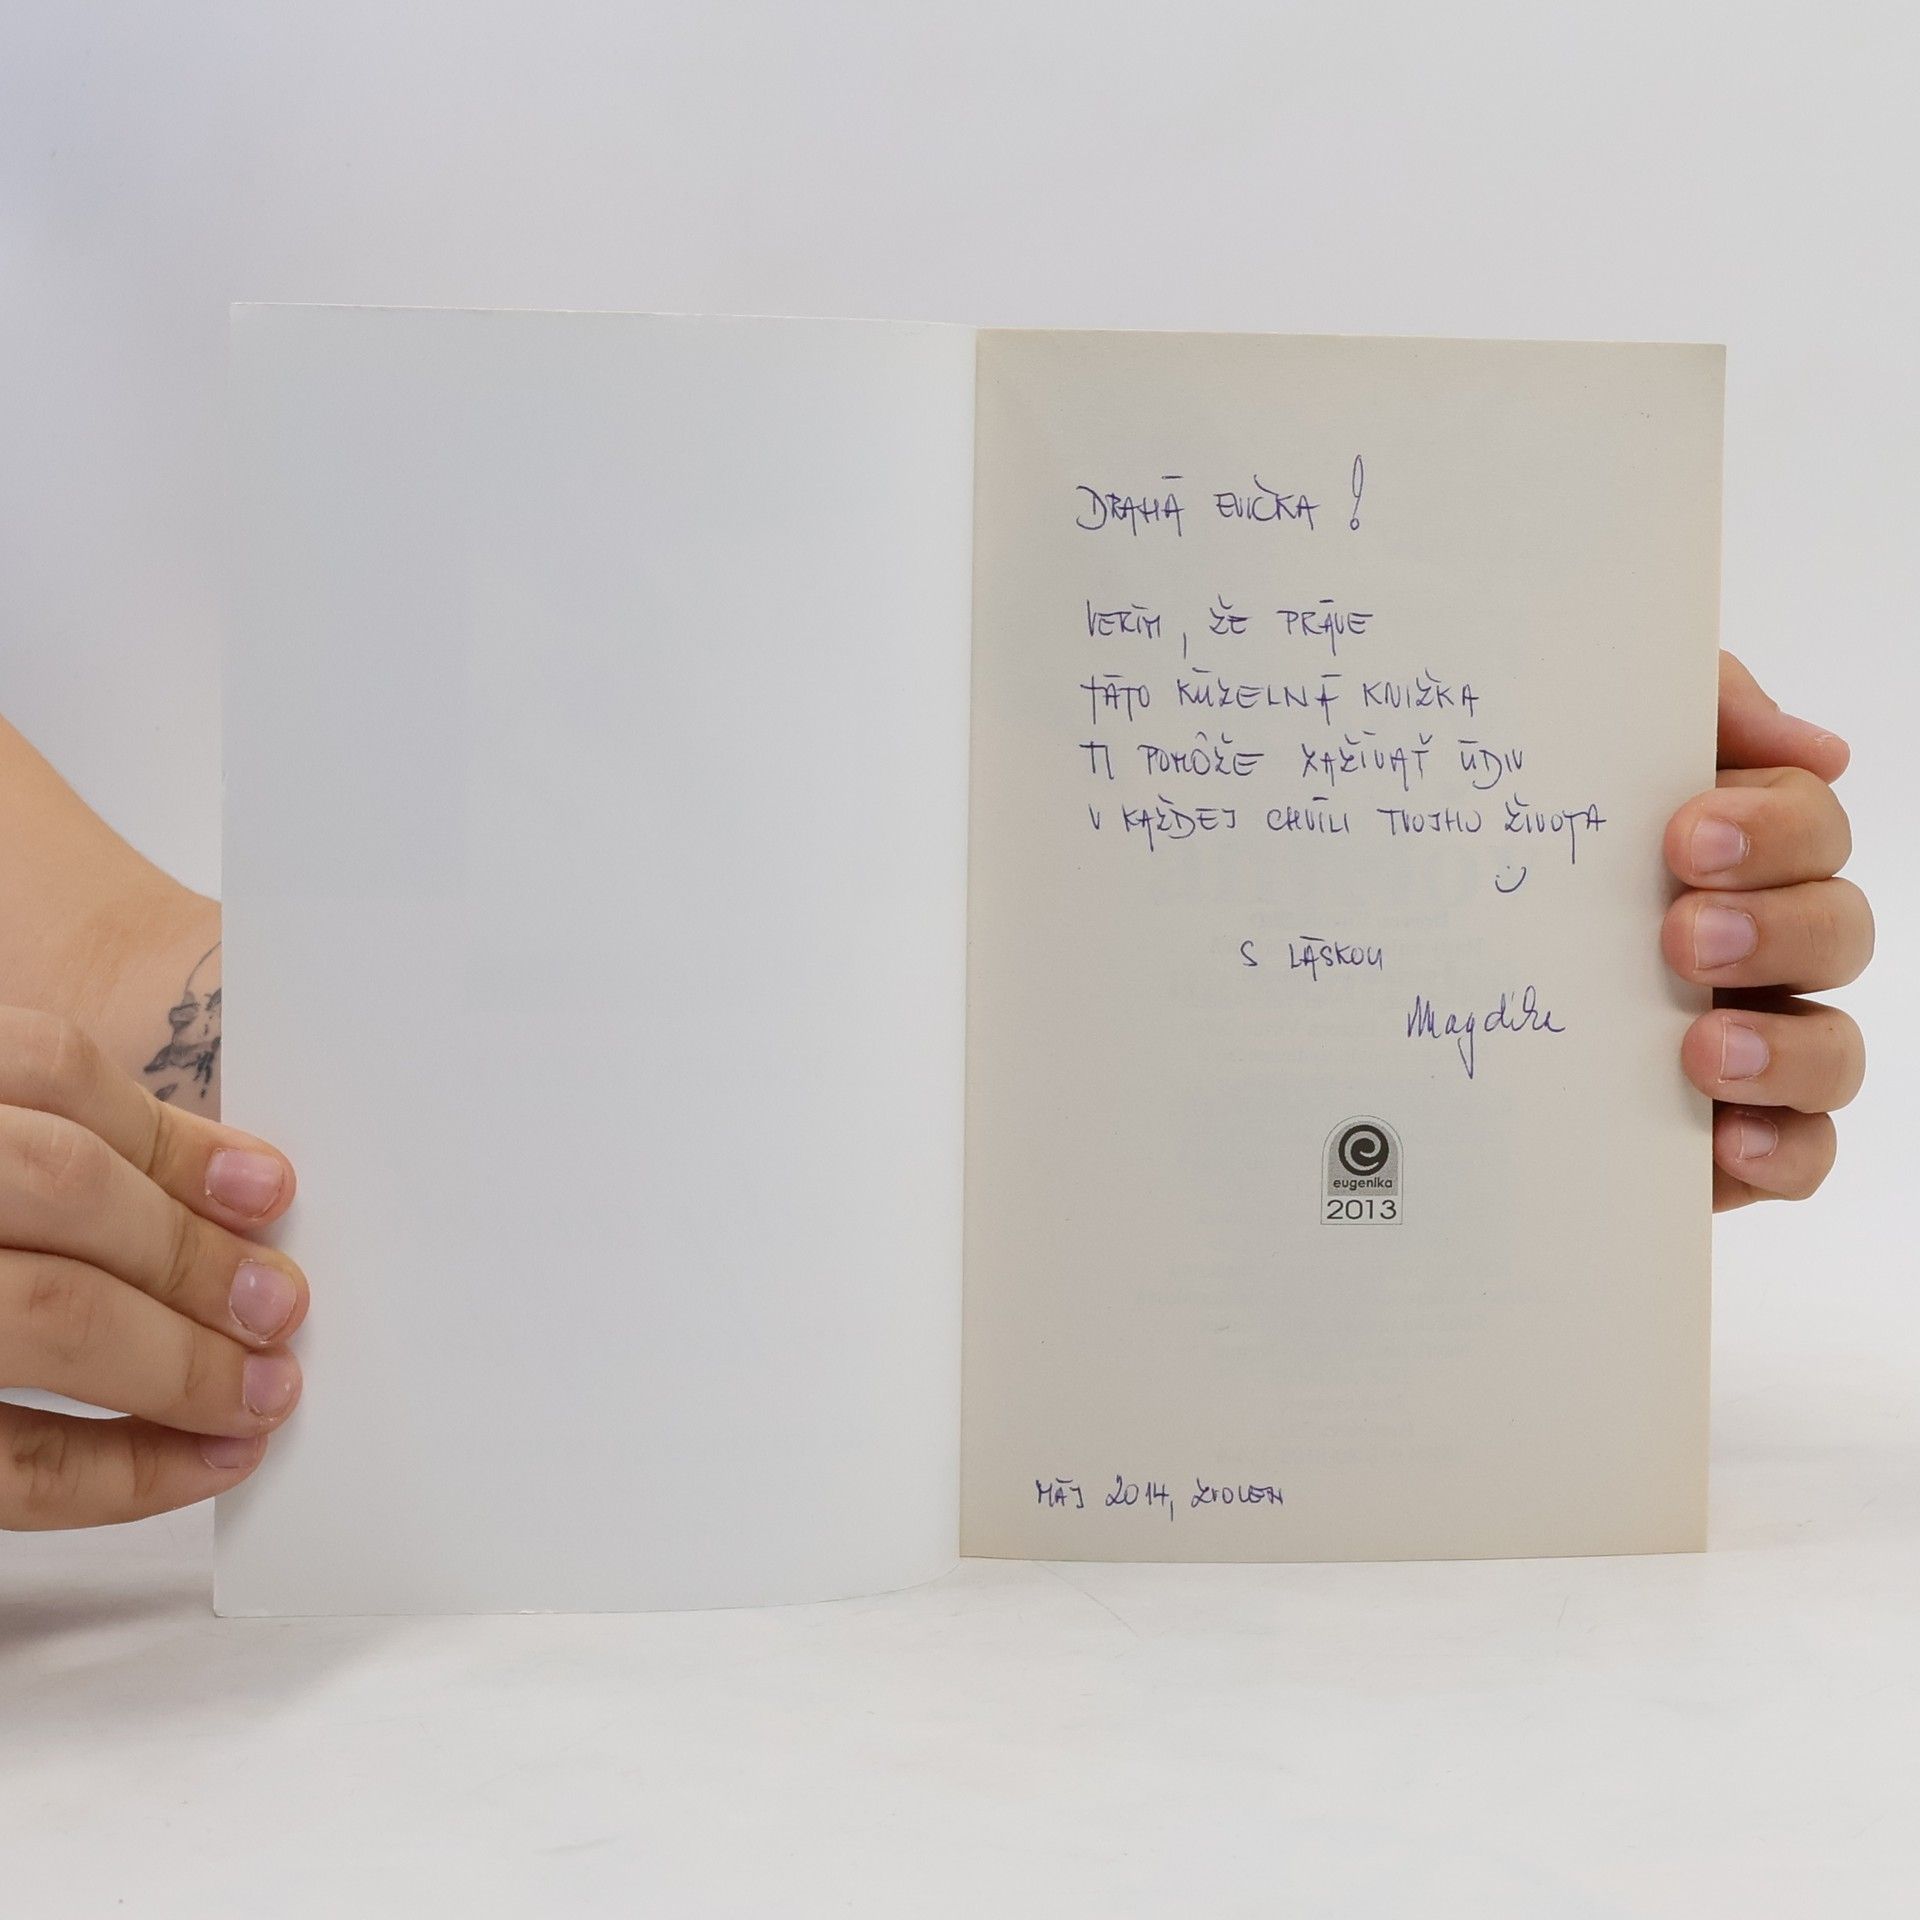 DRAHÁ EVIČKA!
VERÍM, ŽE PRÁVE
TÁTO KÚZELNÁ KNIŽKA
TI POMÔŽE ZAŽÍVAŤ ÚDIV
V KAŽDEJ CHVÍLI TVOJHO ŽIVOTA
S LÁSKOU
Magdika
eugenika
2013
MÁJ 2014, ZVOLEN